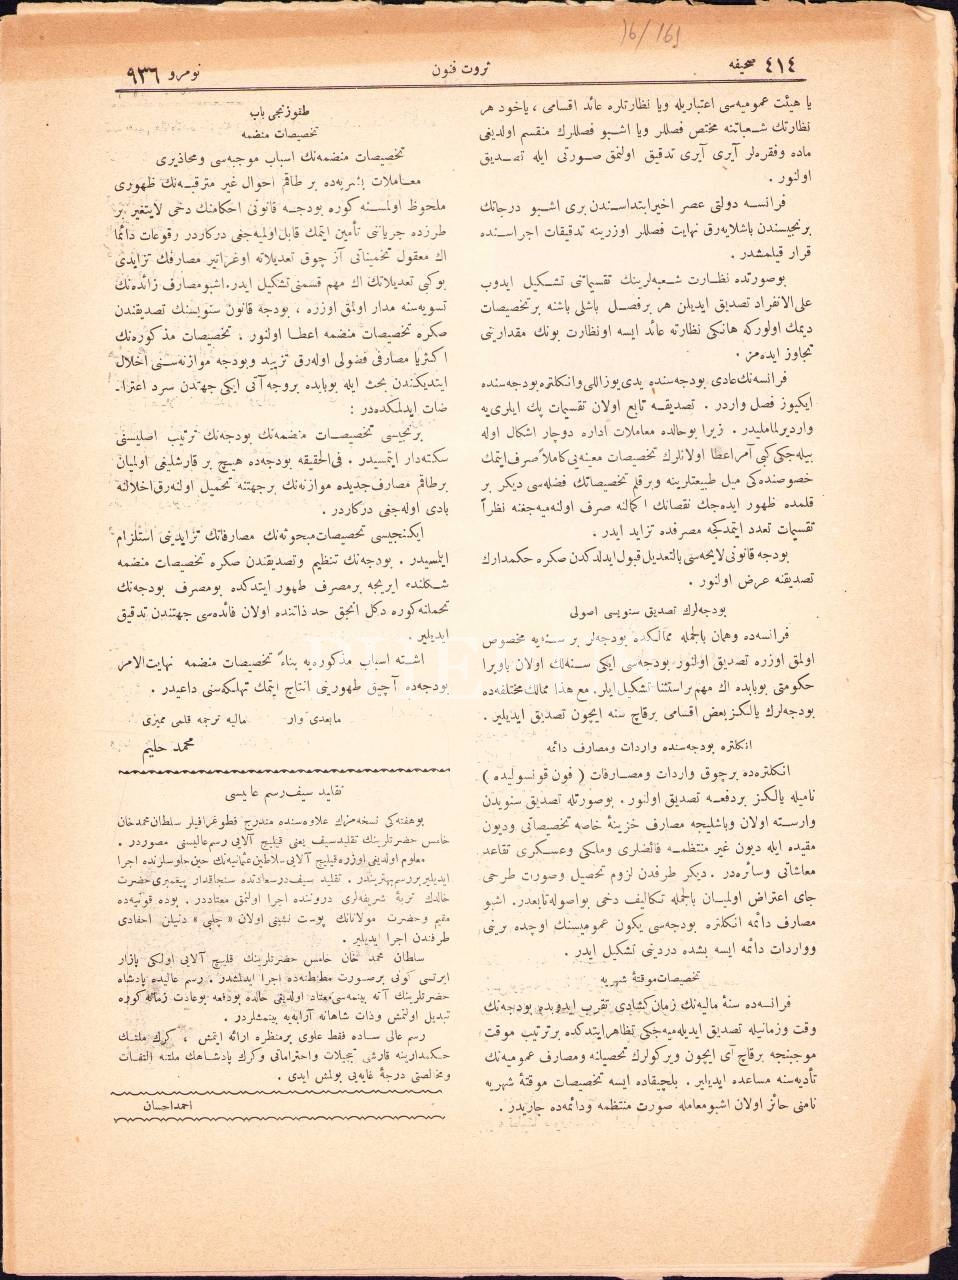 16/161
صحیفه ٤١٤
ثروت فنون
نومرو ٩٣٦
یا هیئت عمومیه‌سی اعتباریله ویا نظارتلره عائد اقسامی ، یاخود هر
نظارتك شـعباتنه مختص فصللر ویا اشبو فصللرك منقسم اولدیغی
ماده وفقره‌لر آیری آیری تدقیق اولنمق صـورتی ایله تصـدیق
اولنور .
فرانسـه دولتی عصر اخیر ابتداسـندن بری اشـبو درجاتك
برنجیسندن باشلایه‌رق نهایت فصللر اوزرینه تدقیقات اجراسـنده
قرار قیلمشدر .
بوصورتده نظـارت شـعبه‌لرینك تقسیماتی تشـكیل ایدوب
علی‌الانفراد تصدیق ایدیلن هر برفصـل باشلی باشنه برتخصیصات
دیمك اولورکه هانكی نظارته عائد ایسه اونظارت بونك مقدارینی
تجاوز ایده‌مز .
فرانسه‌نك عادی بودجه‌سنده یدی یوز اللی وانكلتره بودجه‌سنده
ایكیوز فصل واردر . تصدیقـه تابع اولان تقسیمات پك ایلری‌یه
واردیرلمامليدر . زیرا بوحالده معاملات اداره دوچار اشكال اوله
بیله‌جكی كبی آمر اعطا اولانلرك تخصیصات معینه‌یی كاملاً صرف ایتمك
خصوصنده‌كی میل طبیعتلرینه وبرقلم تخصیصاتك فضله‌سی دیكر بر
قلمده ظهور ایده‌جك نقصانك اكمالنه صرف اولنه‌میه‌جغنه نظراً
تقسیمات تعدد ایتمدكجه مصرفده تزاید ایدر .
بودجه قانونی لایحه‌سی بالتعدیل قبول ایدلدكدن صكره حكمدارك
تصدیقنه عرض اولنور .
بودجه‌لرك تصدیق سنویسی اصولی
فرانسه‌ده وهمان بالجمله ممالكده بودجه‌لر بر سـنه‌یه مخصوص
اولمق اوزره تصدیق اولنور بودجه‌سی ایكی سـنه‌لك اولان باویرا
حكومتی بوبابده اك مهم بر استثنا تشكیل ایلر. مع هذا ممالك مختلفه‌ده
بودجه‌لرك یالكز بعض اقسامی برقاچ سنه ایچون تصدیق ایدیلیر .
انكلتره بودجه‌سنده واردات ومصارف دائمه
انكلتره‌ده بر چوق واردات ومصـارفات ( فون قونسولیده )
نامیله یالكز بردفعـه تصدیق اولنور . بوصورتله تصدیق سنویدن
وارسـته اولان وباشلیجه مصارف خزینهٔ خاصه تخصیصاتی ودیون
مقیده ایله دیون غیر منتظمـه فائضلری وملكی وعسـكری تقاعد
معاشاتی وسائره‌در . دیكر طرفدن لزوم تحصیل وصورت طرحی
جای اعتراض اولمیـان بالجمله تكالیف دخی بواصوله تابعدر. اشبو
مصارف دائمه انكلتره بودجه‌سی یكون عمومیسنك اوچده برینی
وواردات دائمه ایسه بشده دردینی تشكیل ایدر .
تخصیصات موقتهٔ شهریه
فرانسـه‌ده سنهٔ مالیه‌نك زمان كشادی تقرب ایدوبده بودجه‌نك
وقت وزمانیله تصدیق ایدیله‌میه‌جكی تظاهر ایتدكده بر ترتیب موقت
موجبنجه برقاچ آی ایچون ویركولرك تحصیلنه ومصارف عمومیه‌نك
تأدیه‌سنه مساعده ایدیلیر . بلچیقاده ایسه تخصیصات موقتهٔ شهریه
نامنی حائز اولان اشبو معامله صورت منتظمه ودائمه‌ده جاریدر .
طقوزنجی باب
تخصیصات منضمه
تخصیصات منضمه‌نك اسباب موجبه‌سی ومحاذیری
معـاملات بشریه‌ده بر طاقم احوال غیر مترقبـه‌نك ظهوری
ملحوظ اولمسـنه كوره بودجـه قانونی احكامنك دخی لایتغیر بر
طرزده جریانی تأمین ایتمك قابل اولمیه‌جغی دركاردر رقوعات دائما
اك معقول تخمیناتی آز چوق تعدیلاته اوغراتیر مصارفك تزایدی
بوكبی تعدیلاتك اك مهم قسمنی تشكیل ایدر. اشبو مصارف زائده‌نك
تسویه‌سنه مدار اولمق اوزره ، بودجه قانون سنویسنك تصدیقندن
صكره تخصیصات منضمه اعطـا اولنور . تخصیصات مذكوره‌نك
اكثریا مصارفی فضولی اوله‌رق تزیید وبودجه موازنه‌سـنی اخلال
ایتدیكندن بحث ایله بوبابده بروجه آتی ایكی جهتدن سرد اعترا-
ضات ایدلمكده‌در :
برنجیسی تخصیصـات منضمه‌نك بودجه‌نك ترتیب اصلیسنی
سكته‌دار ایتمسیدر . فی‌الحقیقه بودجه‌ده هیـچ بر قارشلیغی اولمیان
برطاقم مصارف جدیده موازنه‌نك برجهتنه تحمیل اولنه‌رق اخلالنه
بادی اوله‌جغی دركاردر .
ایكنجیسی تخصیصات مبحوثه‌نك مصارفاتك تزایدینی استلزام
ایلمسیدر . بودجه‌نك تنظیم وتصدیقندن صكره تخصیصات منضمه
شـكلنده ایریجه بر مصرف ظهور ایتدكده بومصرف بودجه‌نك
تحملنه كوره دكل انجق حد ذاتنده اولان فائده‌سی جهتندن تدقیق
ایدیلیر .
اشـته اسباب مذكوره‌یه بناءً تخصیصات منضمه نهایت‌الامر
بودجه‌ده آچیق ظهورینی انتاج ایتمك تهلكه‌سنی داعیدر .
مابعدی وار
مالیه ترجمه قلمی ممیزی
محمد حلیم
تقلید سیف رسم عالیسی
بو هفته‌كی نسخه‌مزك علاوه‌سنده مندرج فطوغرافیلر سلطان محمد خان
خامس حضرتلرینك تقلید سیف یعنی قیلیچ آلایی رسم عالیسنی مصوردر .
معلوم اولدیغی اوزره قیلیچ آلایی سلاطین عثمانیه‌نك حین جلوسلرنده اجرا
ایدیلیر بر رسم بهتریندر . تقلید سیف درسعادتده سنجاقدار پیغمبری حضرت
خالدك تربهٔ شریفه‌لری دروننده اجرا اولنمق معتاددر . بوده قونیه‌ده
مقیم وحضرت مولانانك پوست نشینی اولان « چلبی » دنیلن احفادی
طرفندن اجرا ایدیلیر .
سلطان محمد خان خامس حضرتلرینك قلیچ آلایی اولكی پازار
ایرتسی كونی برصـورت مطنطنه‌ده اجرا ایدلمشدر . رسم عالیده پادشاه
حضرتلرینك آته بینمه‌سی معتاد اولدیغی حالده بودفعه بوعادت زمانه كوره
تبدیل اولنمش وذات شاهانه آرابه‌یه بینمشلردر .
رسم عالی سـاده فقط علوی بر منظره ارائه ایتمش ، كرك ملتـك
حـكمدارینه قارشی تبجیلات واحتراماتی وكرك پادشـاهك ملتنه التفات
ومخالصتی درجهٔ غایه‌یی بولمش ایدی .
احمد احسان